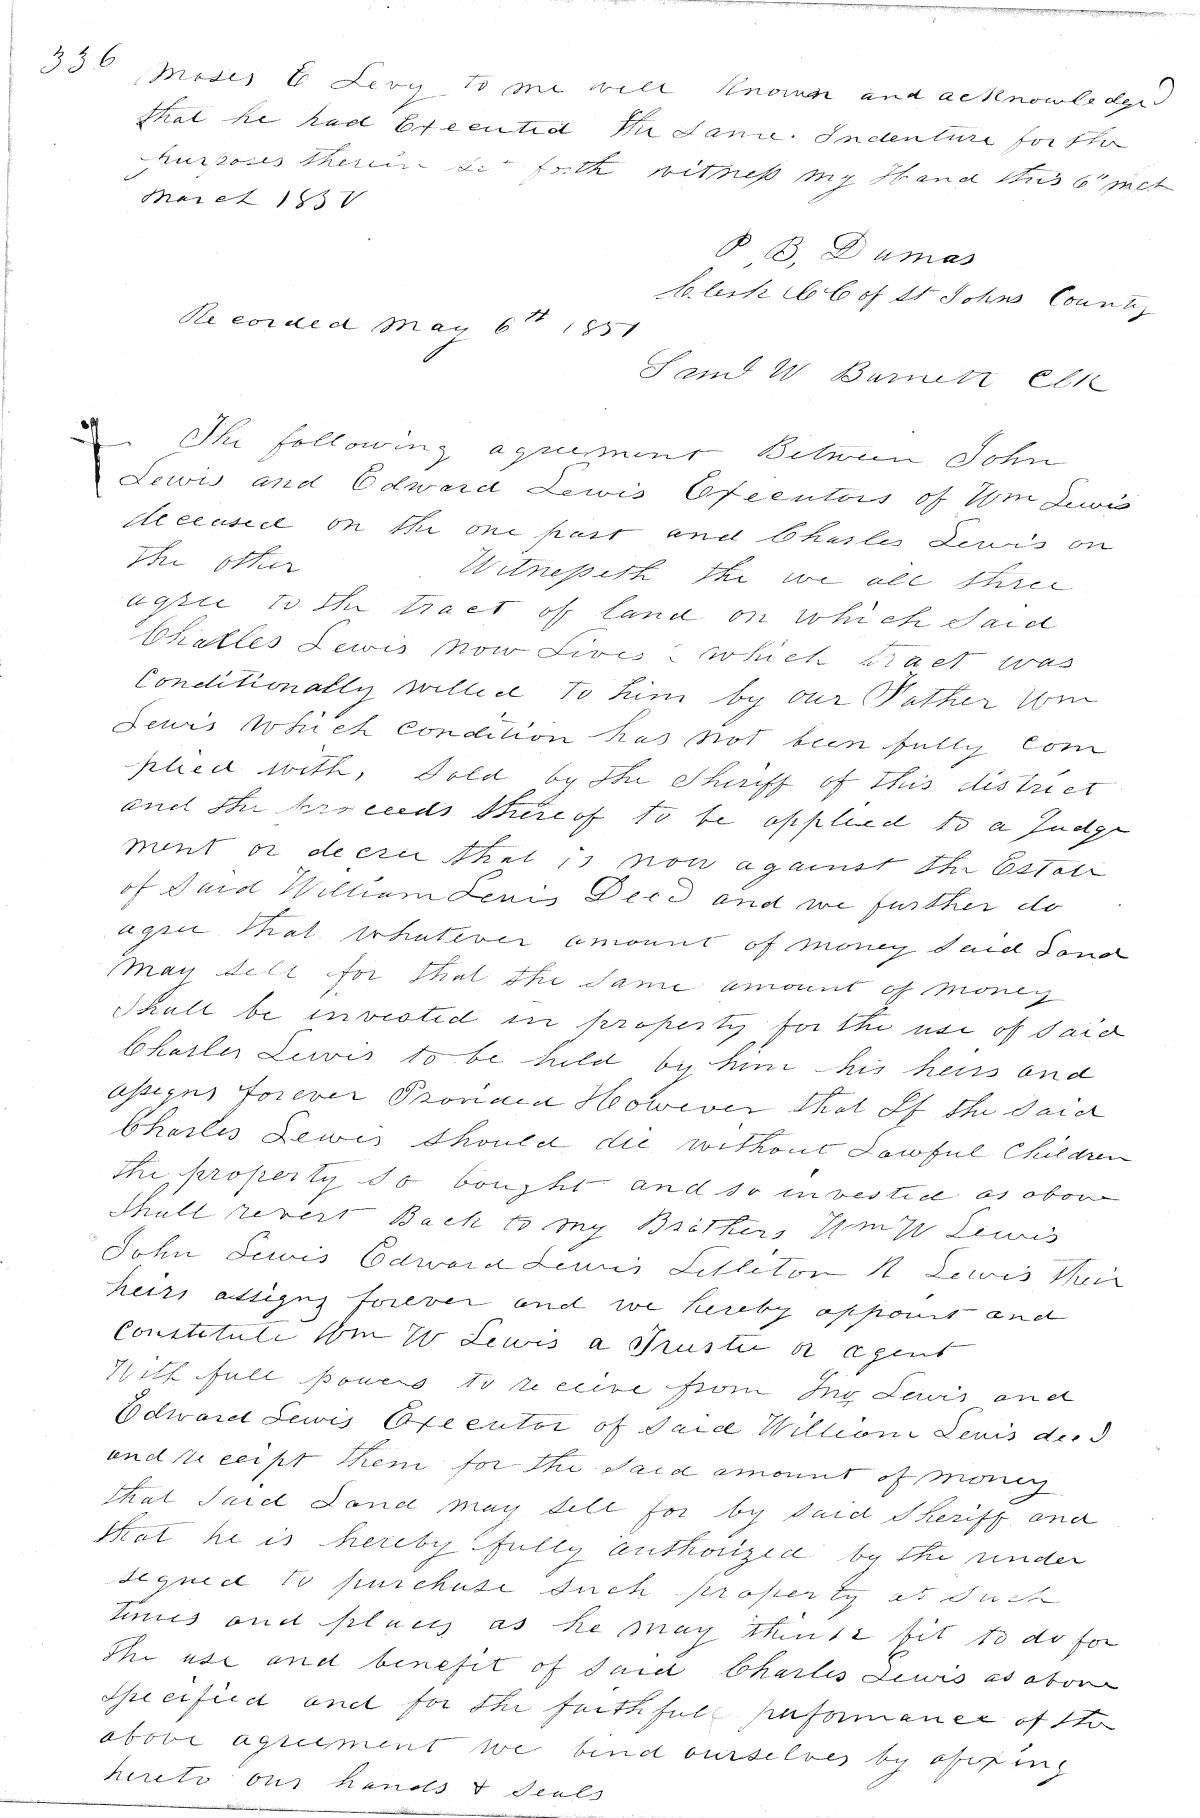 336
Moses E Levy to me well Known and acknowledged
that he had Executed the Same. Indenture for the
purposes therein set forth witness my Hand this 6th
March 185
P. B. Dumas
Clerk CC of St Johns County
Recorded May 6th 1851
Saml W Burnett Clk
The following agreement Between John
Lewis and Edward Lewis Executors of Wm Lewis
deceased on the one part and Charles Lewis on
the other Witnesseth the we all three
agree to the tract of land on which Said
Charles Lewis now Lives : which tract was
Conditionally willed to him by our Father Wm
Lewis which condition has not been fully com
plied with, Sold by the Sheriff of this district
and the proceeds thereof to be applied to a Judge
ment or decree that is now against the Estate
of Said William Lewis Decd and we further do
agree that whatever amount of money Said Land
May Sell for that the Same amount of money
Shall be invested in property for the use of Said
Charles Lewis to be held by him his heirs and
assigns forever Provided However that If the Said
Charles Lewis should die without Lawful Children
the property so bought and so invested as above
Shall revert Back to my Brothers Wm W Lewis
John Lewis Edward Lewis Littleton R Lewis their
heirs assigns forever and we hereby appoint and
Constitute Wm W Lewis a Trustee or agent
With full powers to receive from Jno Lewis and
Edward Lewis Executor of Said William Lewis decd
and receipt them for the Said amount of money
that Said Land may Sell for by Said Sheriff and
that he is hereby fully authorized by the under
signed to purchase such property at Such
times and places as he may think fit to do for
the use and benefit of Said Charles Lewis as above
Specified and for the faithfull performance of the
above agreement we bind ourselves by affixing
hereto our hands & Seals